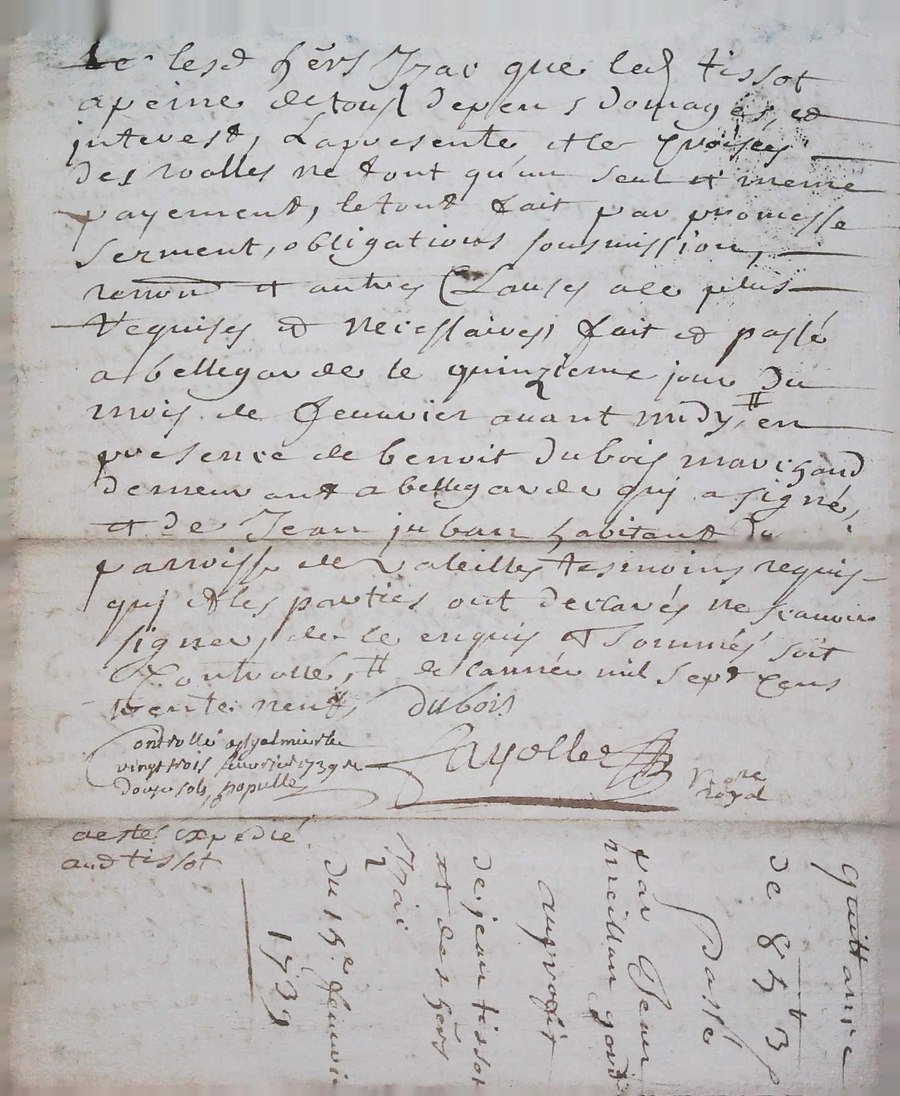 lesd hers Izac que led tissot
a peine de tous depens domages, et
interest, La presente et le
des rolles ne font qu'un seul et meme
payement, le tout fait par promesse
serment, obligations sousmission,
renon et autres Clauses a ce plus
requises et necessaires fait et passé
a bellegarde le quinzieme jour du
mois de Jenuvier avant midy, en
presence de benoit dubois marchand
demeurant a bellegarde qui a signé,
et de Jean juban habitant la
parroisse de Valeilles tesmoins requis
qui et les parties ont declarés ne scauoir
signer, de ce enquis et sommés soit
Controllé, de l'année mil sept cens
trente neuf dubois
Controllé a st galmier le
vingt trois feuvrier 1739 R
douze sols, papulle
Fayolle nore
royal
a esté expedié
aud tissot
quittance
de 85 tt 3 s
Passé
par Jean
meillan
au proffit
de jean tissot
et des hers
Izac
du 15e Jenuvi
1739